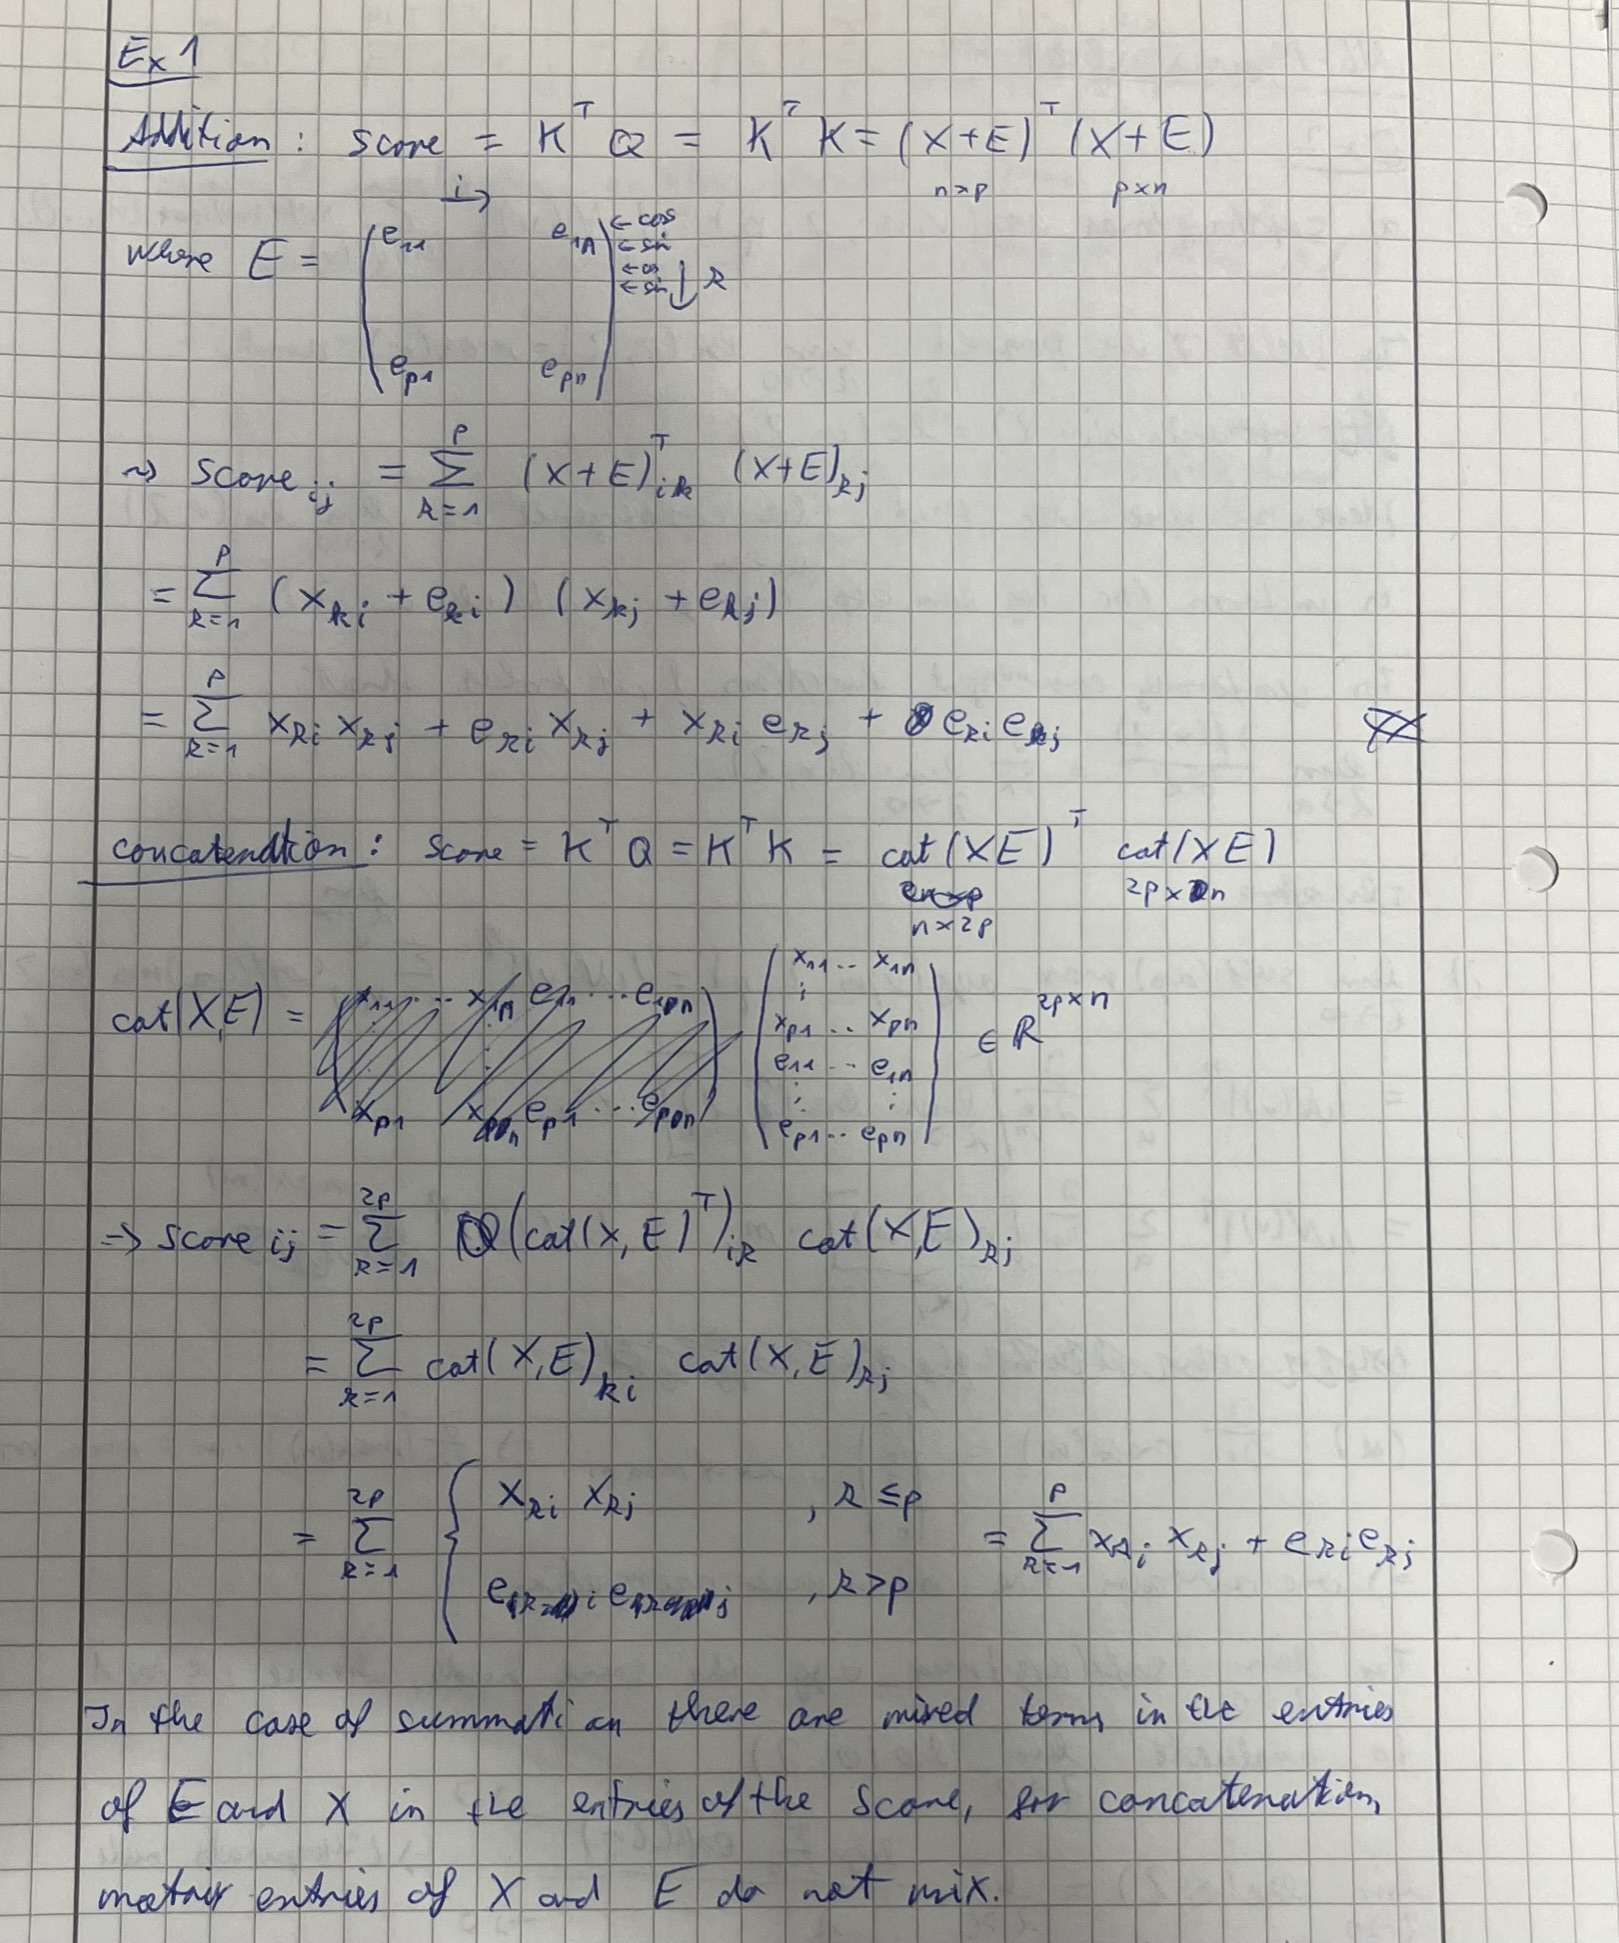 Ex 1
Addition: Score = K^T Q = K^T K = (X+E)^T (X+E)
n×p p×n
i →
where E = ( e_11 e_1n ) ← cos
← sin
← cos
← sin ↓ k
( e_p1 e_pn )
⇝ Score_ij = Σ_{k=1}^{p} (X+E)^T_ik (X+E)_kj
= Σ_{k=1}^{p} (x_ki + e_ki) (x_kj + e_kj)
= Σ_{k=1}^{p} x_ki x_kj + e_ki x_kj + x_ki e_kj + e_ki e_kj
concatenation: Score = K^T Q = K^T K = cat(XE)^T cat(XE)
n×2p 2p×n
cat(X,E) = ( x_11 .. x_1n
⋮
x_p1 .. x_pn
e_11 .. e_1n
⋮ ⋮
e_p1 .. e_pn ) ∈ R^{2p×n}
⇒ Score_ij = Σ_{k=1}^{2p} (cat(X,E)^T)_ik cat(X,E)_kj
= Σ_{k=1}^{2p} cat(X,E)_ki cat(X,E)_kj
= Σ_{k=1}^{2p} { x_ki x_kj , k ≤ p = Σ_{k=1}^{p} x_ki x_kj + e_ki e_kj
, k > p
In the case of summation there are mixed terms in the entries
of E and X in the entries of the Score, for concatenation,
matrix entries of X and E do not mix.